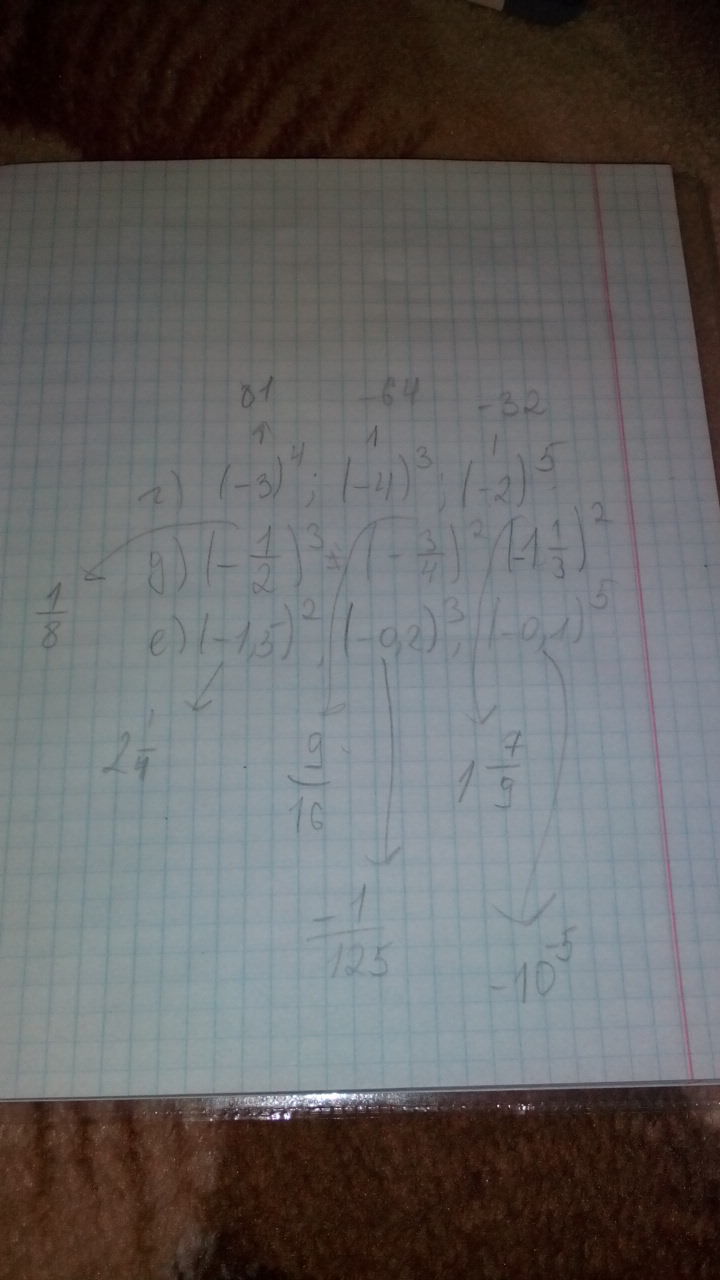 81 -64 -32
г) (-3)^4; (-4)^3; (-2)^5
д) (-1/2)^3; (-3/4)^2 (-1 1/3)^2
1/8
е) (-1,5)^2, (-0,2)^3; (-0,1)^5
2 1/4 9/16 1 7/9
-1/125 -10^-5